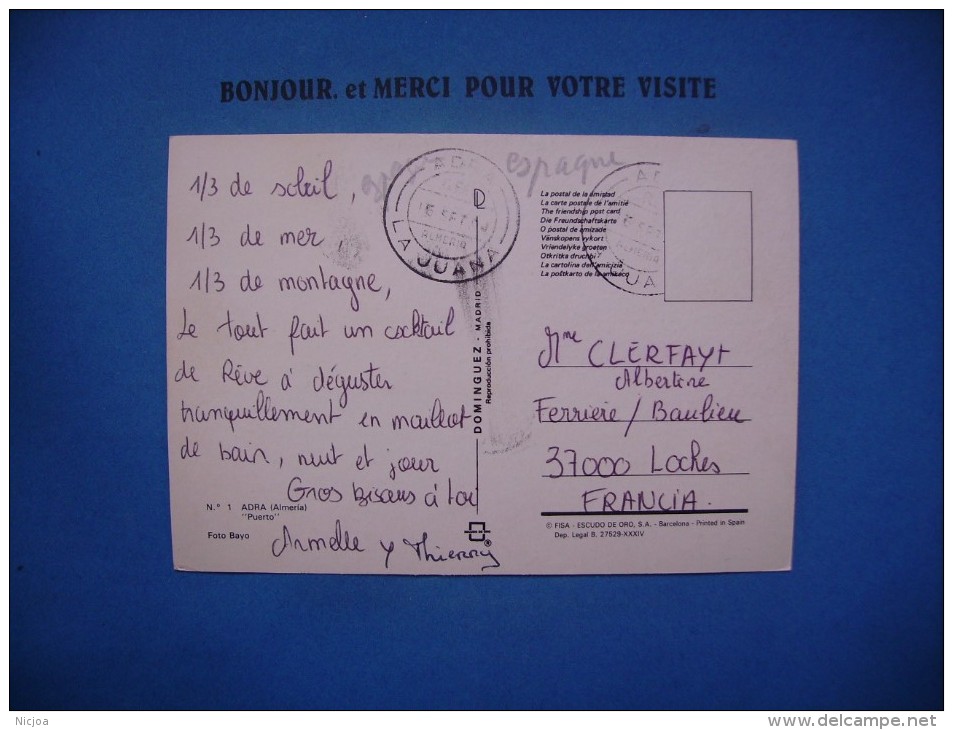 BONJOUR. et MERCI POUR VOTRE VISITE
espagne
1/3 de soleil,
1/3 de mer
1/3 de montagne,
Le tout fait un cocktail
de Rêve à déguster
tranquillement en maillot
de bain, nuit et jour
Gros bisous à toi
Armelle y Thierry
N.º 1 ADRA (Almería)
"Puerto"
Foto Bayo
LA JUANA
ALMERIA
DOMINGUEZ - MADRID
Reproducción prohibida
La postal de la amistad
La carte postale de l'amitié
The friendship post card
Die Freundschaftskarte
O postal de amizade
Vänskapens vykort
Vriendelyke groeten
Otkritka druchbi
La cartolina dell'amicizia
La poŝtkarto de la amikeco
Mme CLERFAYT
Albertine
Ferriere/Baulieu
37000 Loches
FRANCIA.
© FISA - ESCUDO DE ORO, S.A. - Barcelona - Printed in Spain
Dep. Legal B. 27529-XXXIV
Nicjoa
www.delcampe.net